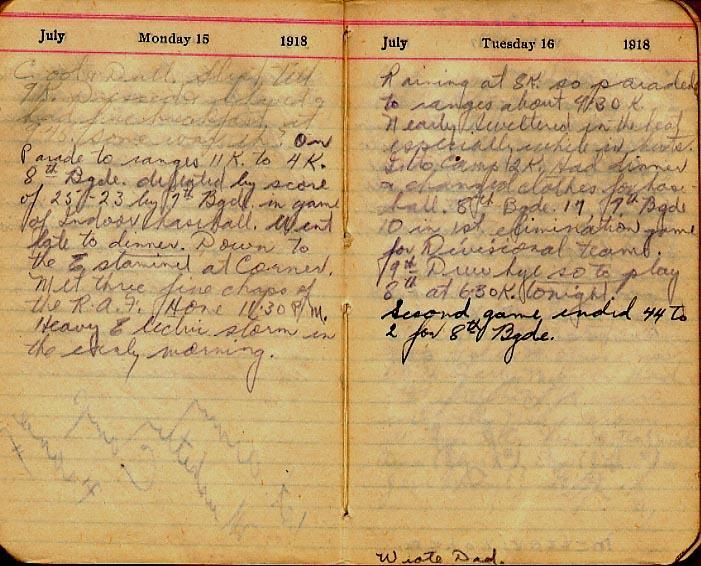 July Monday 15 1918
Cool & Dull. Slept till
9K. Dressed &
had fine breakfast at
9.45. some . On
Parade to ranges 11K. to 4K.
8th Bgde. defeated by score
of 25-23 by 9th Bgde. in game
of Indoor Baseball. Went
late to dinner. Down to
the Estaminet at Corner.
Met three fine chaps of
the R.A.F. Home 11.30 P.M.
Heavy Electric storm in
the early morning.
July Tuesday 16 1918
Raining at 8K. so paraded
to ranges about 9.30K
Nearly sweltered in the heat
especially while in
To Camp 2K. Had dinner
& changed clothes for base-
ball. 8th Bgde. 17 9th Bgde
10 in 1st. elimination game
for Divisional team.
9th Drew bye so to play
8th at 6.30K. tonight
Second game ended 44 to
2 for 8th Bgde.
Wrote Dad.